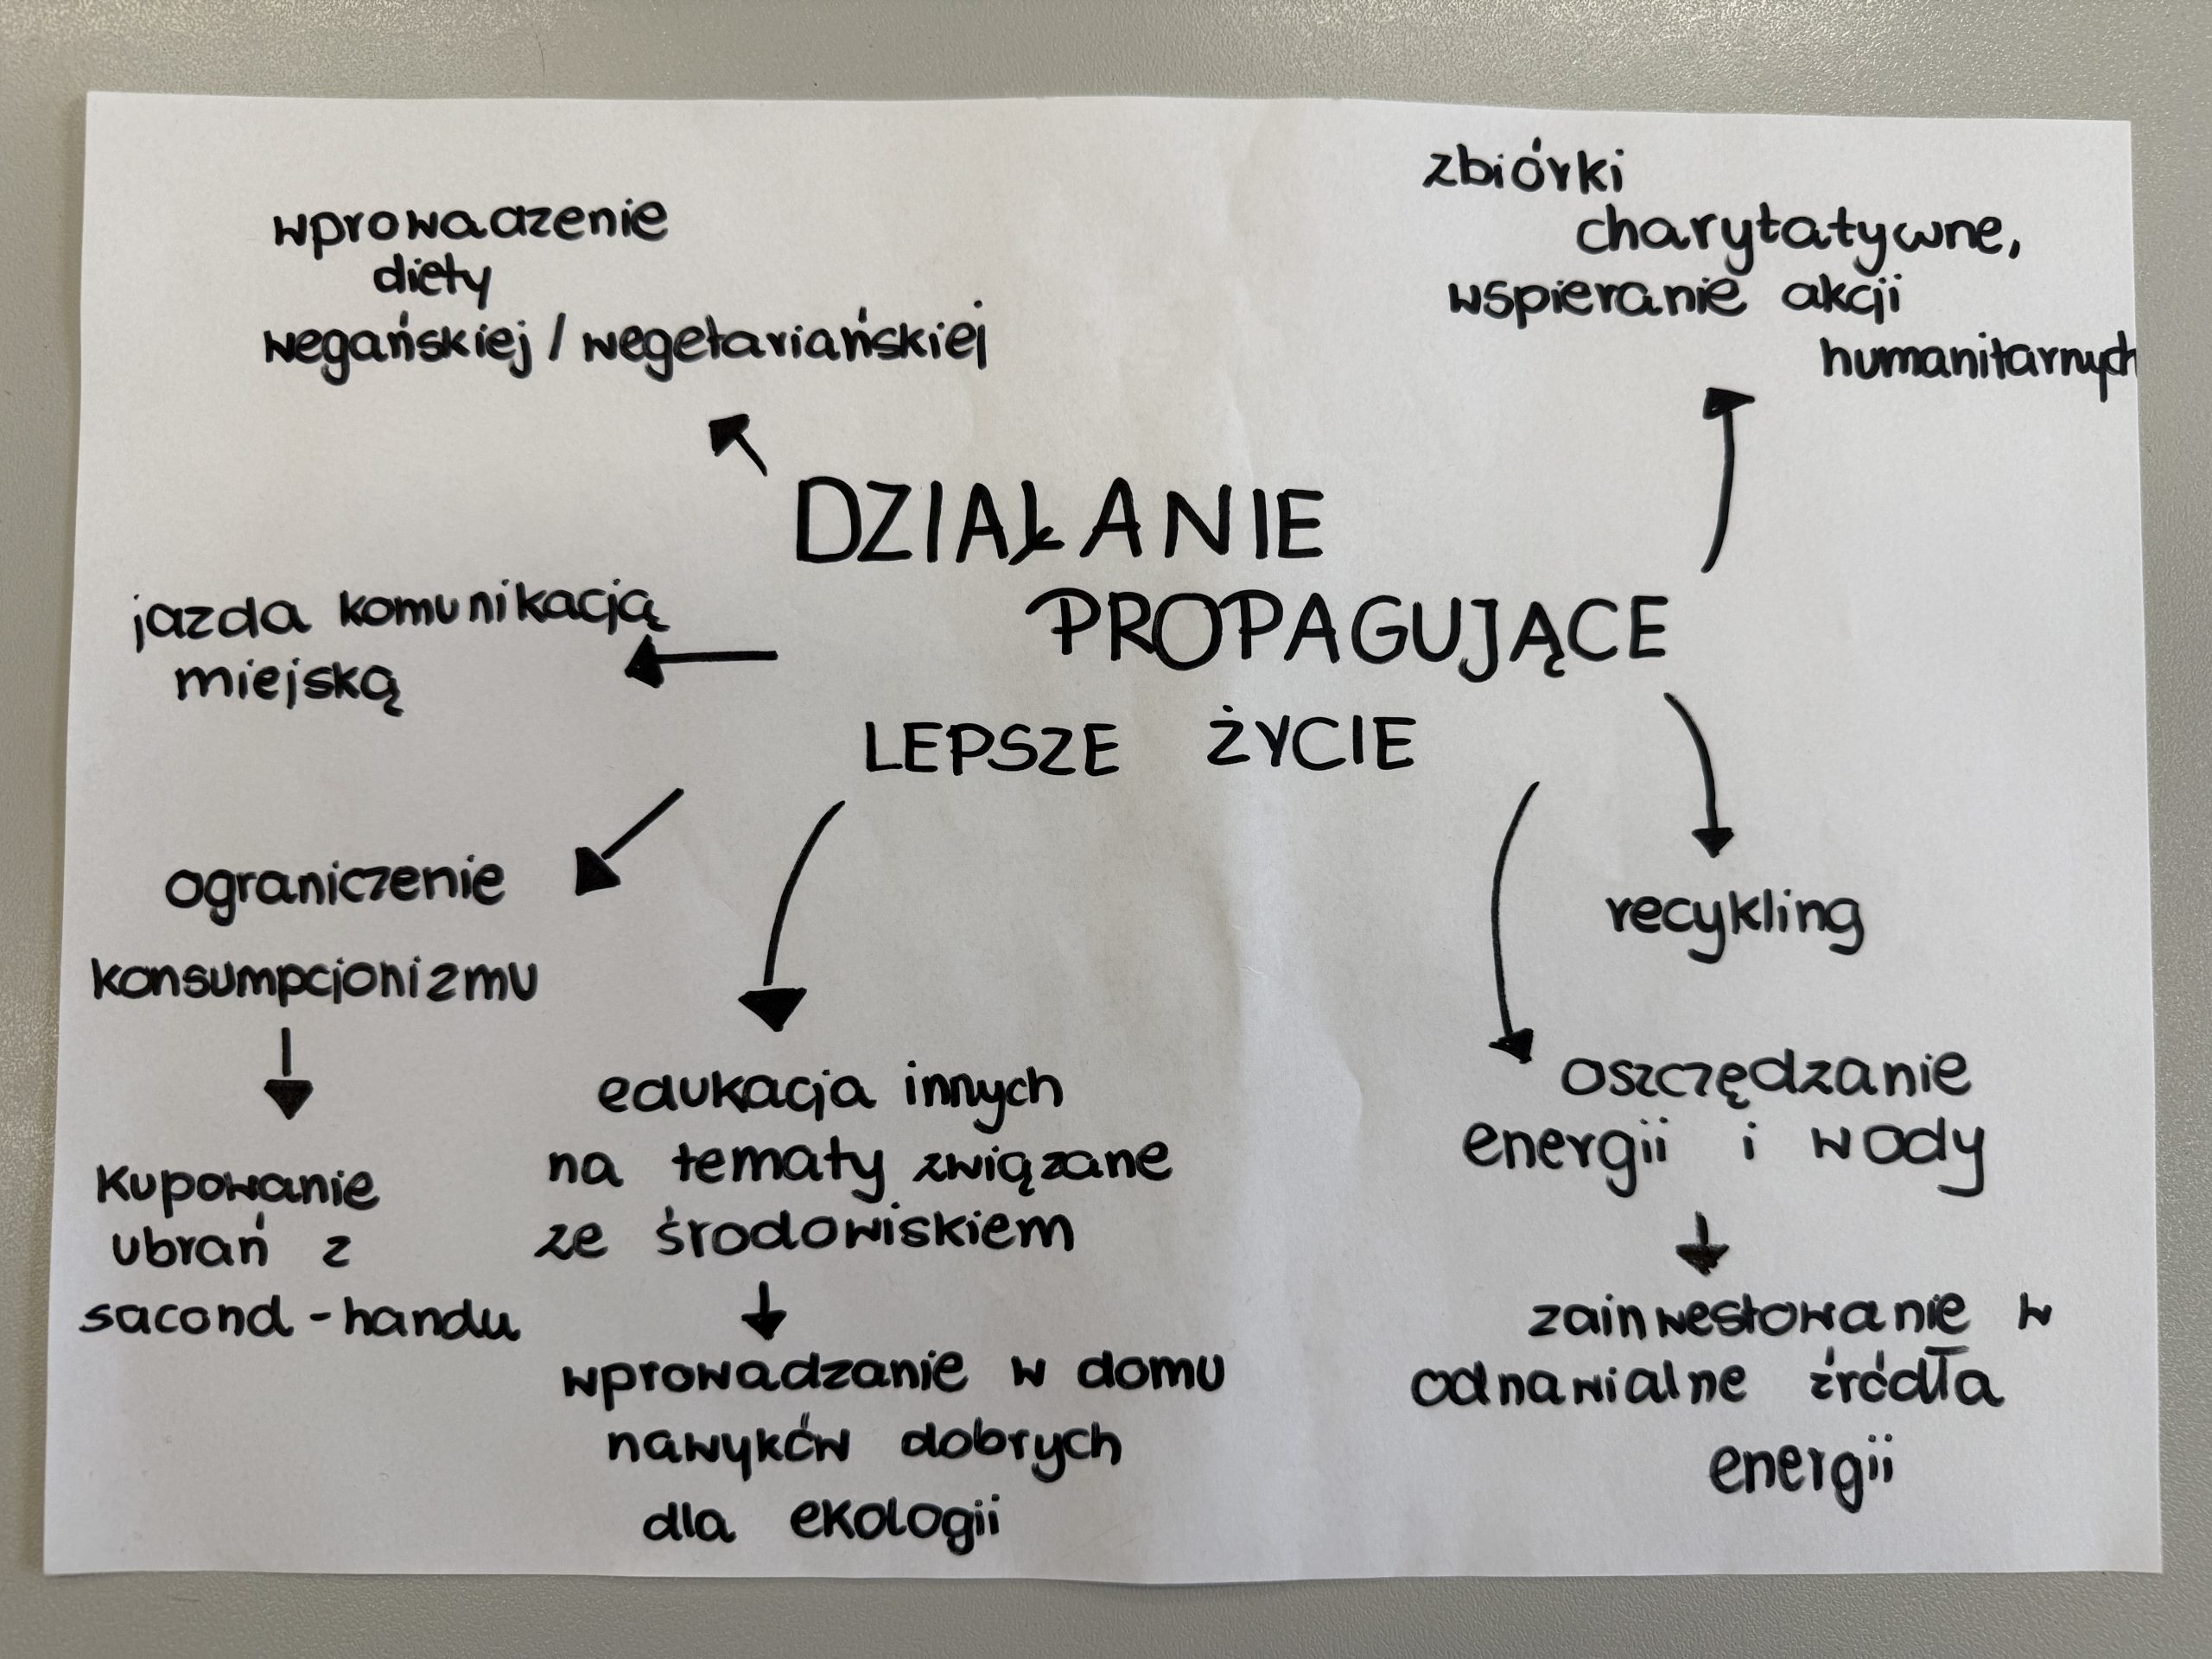 wprowadzenie
diety
wegańskiej / wegetariańskiej
zbiórki
charytatywne,
wspieranie akcji
humanitarnych
DZIAŁANIE
PROPAGUJĄCE
LEPSZE ŻYCIE
jazda komunikacją
miejską
ograniczenie
konsumpcjonizmu
kupowanie
ubrań z
sacond-handu
edukacja innych
na tematy związane
ze środowiskiem
wprowadzanie w domu
nawyków dobrych
dla ekologii
recykling
oszczędzanie
energii i wody
zainwestowanie w
odnawialne źródła
energii